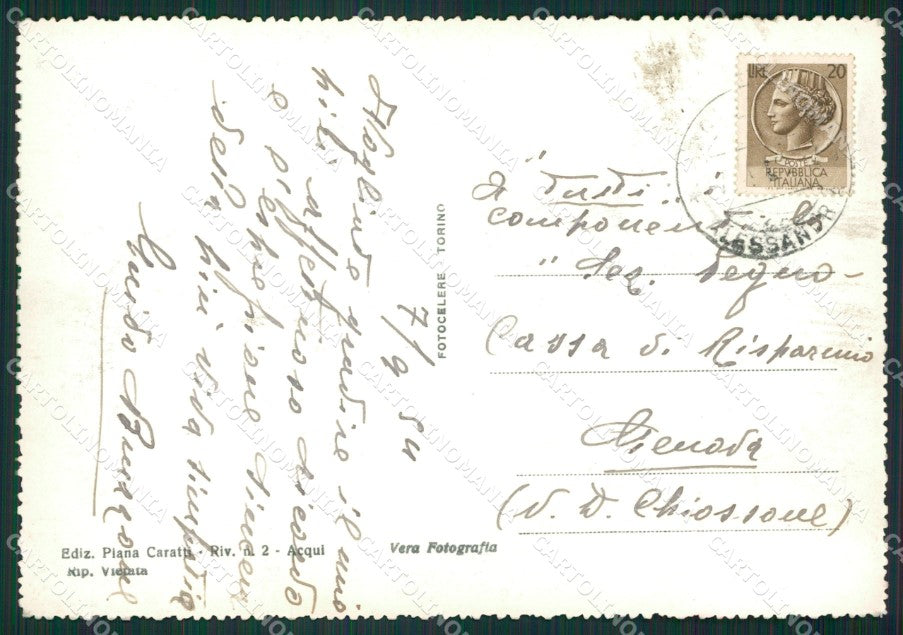 7/9 54
Vogliate gradire il mio
più affettuoso ricordo
e l'espressione sincera
della mia viva simpatia
Guido
A tutti i
componenti la
"Sez. Pegno"
Cassa di Risparmio
Genova
(V. D. Chiossone)
LIRE 20
POSTE
REPVBBLICA
ITALIANA
ALESSANDR
FOTOCELERE TORINO
Ediz. Piana Caratti - Riv. n. 2 - Acqui
Rip. Vietata
Vera Fotografia
CARTOLINOMANIA